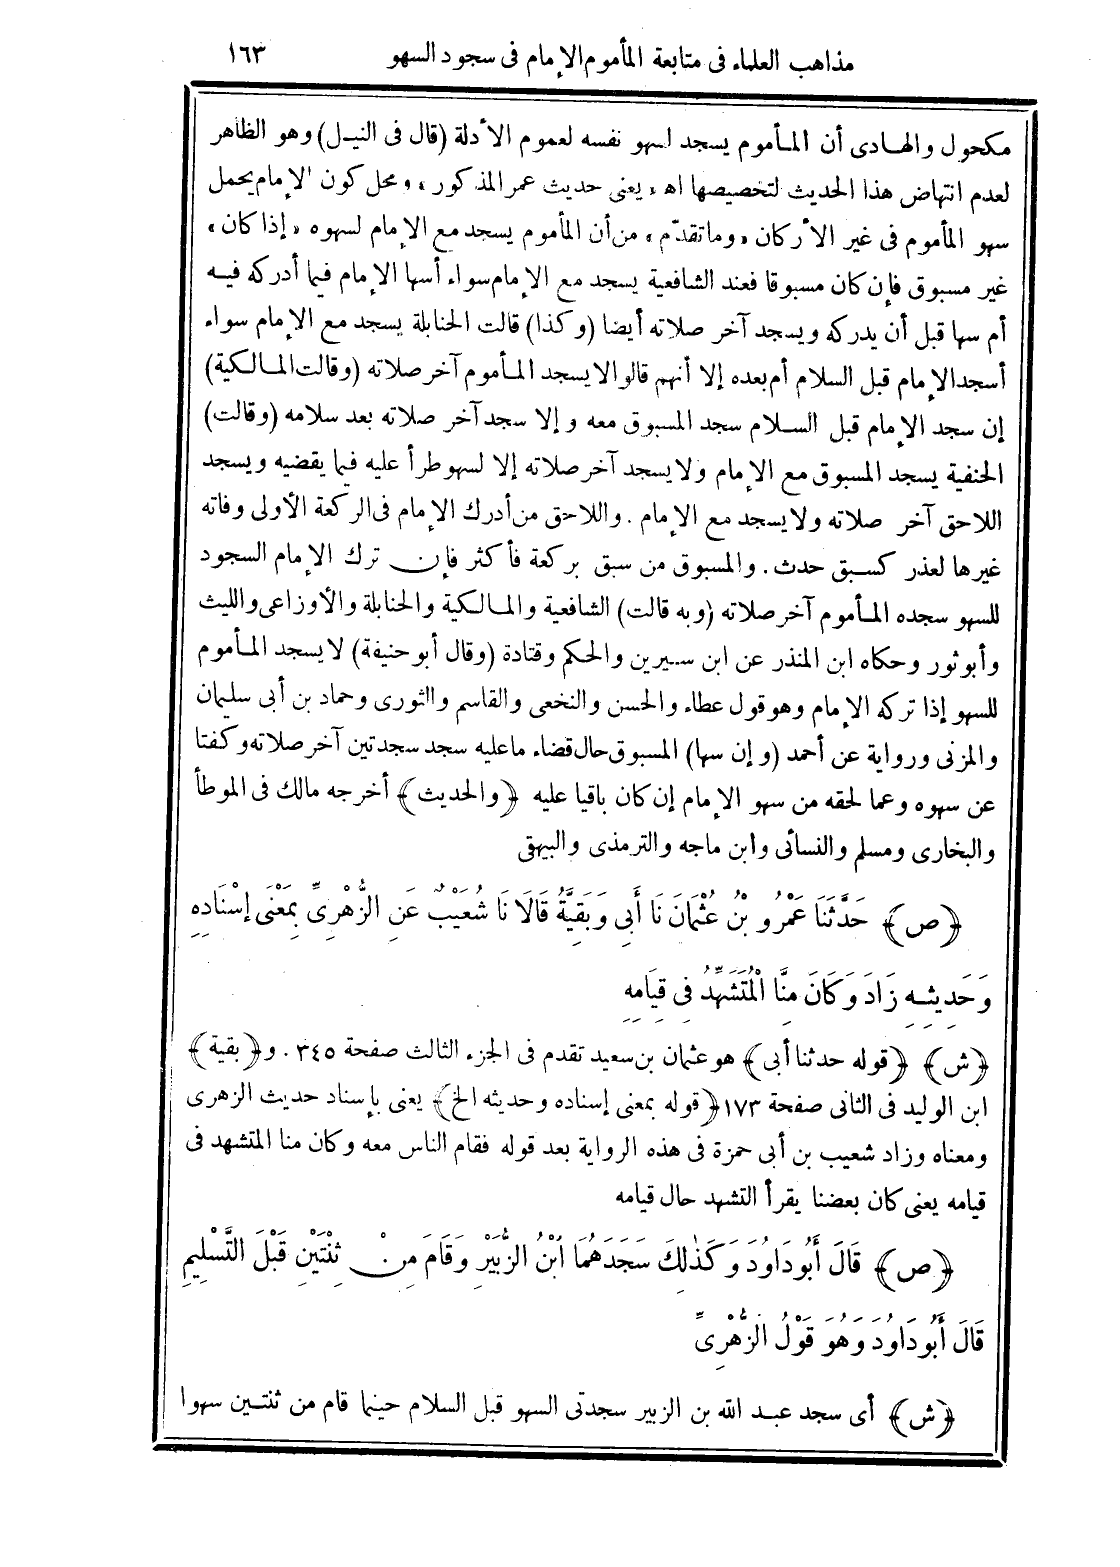 مذاهب العلماء فى متابعة المأموم الإمام فى سجود السهو ١٦٣
مكحول والهادى أن المأموم يسجد لسهو نفسه لعموم الأدلة (قال فى النيل) وهو الظاهر
لعدم انتهاض هذا الحديث لتخصيصها اه «يعنى حديث عمر المذكور» ومحل كون الإمام يحمل
سهو المأموم فى غير الأركان «وما تقدّم» من أن المأموم يسجد مع الإمام لسهوه «إذا كان»
غير مسبوق فإن كان مسبوقا فعند الشافعية يسجد مع الإمام سواء أسها الإمام فيما أدركه فيه
أم سها قبل أن يدركه ويسجد آخر صلاته أيضا (وكذا) قالت الحنابلة يسجد مع الإمام سواء
أسجد الإمام قبل السلام أم بعده إلا أنهم قالوا لا يسجد المأموم آخر صلاته (وقالت المالكية)
إن سجد الإمام قبل السلام سجد المسبوق معه وإلا سجد آخر صلاته بعد سلامه (وقالت)
الحنفية يسجد المسبوق مع الإمام ولا يسجد آخر صلاته إلا لسهو طرأ عليه فيما يقضيه ويسجد
اللاحق آخر صلاته ولا يسجد مع الإمام . واللاحق من أدرك الإمام فى الركعة الأولى وفاته
غيرها لعذر كسبق حدث . والمسبوق من سبق بركعة فأكثر فإن ترك الإمام السجود
للسهو سجده المأموم آخر صلاته (وبه قالت) الشافعية والمالكية والحنابلة والأوزاعى والليث
وأبو ثور وحكاه ابن المنذر عن ابن سيرين والحكم وقتادة (وقال أبو حنيفة) لا يسجد المأموم
للسهو إذا تركه الإمام وهو قول عطاء والحسن والنخعى والقاسم والثورى وحماد بن أبى سليمان
والمزنى ورواية عن أحمد (وإن سها) المسبوق حال قضاء ما عليه سجد سجدتين آخر صلاته وكفتا
عن سهوه وعما لحقه من سهو الإمام إن كان باقيا عليه ﴿والحديث﴾ أخرجه مالك فى الموطأ
والبخارى ومسلم والنسائى وابن ماجه والترمذى والبيهقى
﴿ص﴾ حَدَّثَنَا عَمْرُو بْنُ عُثْمَانَ نَا أَبِى وَبَقِيَّةُ قَالَا نَا شُعَيْبٌ عَنِ الزُّهْرِىِّ بِمَعْنَى إِسْنَادِهِ
وَحَدِيثِهِ زَادَ وَكَانَ مِنَّا الْمُتَشَهِّدُ فِى قِيَامِهِ
﴿ش﴾ ﴿قوله حدثنا أبى﴾ هو عثمان بن سعيد تقدم فى الجزء الثالث صفحة ٣٤٥ . و﴿بقية﴾
ابن الوليد فى الثانى صفحة ١٧٣ ﴿قوله بمعنى إسناده وحديثه الخ﴾ يعنى بإسناد حديث الزهرى
ومعناه وزاد شعيب بن أبى حمزة فى هذه الرواية بعد قوله فقام الناس معه وكان منا المتشهد فى
قيامه يعنى كان بعضنا يقرأ التشهد حال قيامه
﴿ص﴾ قَالَ أَبُو دَاوُدَ وَكَذَٰلِكَ سَجَدَهُمَا ابْنُ الزُّبَيْرِ وَقَامَ مِنْ ثِنْتَيْنِ قَبْلَ التَّسْلِيمِ
قَالَ أَبُو دَاوُدَ وَهُوَ قَوْلُ الزُّهْرِىِّ
﴿ش﴾ أى سجد عبد الله بن الزبير سجدتى السهو قبل السلام حينما قام من ثنتين سهوا